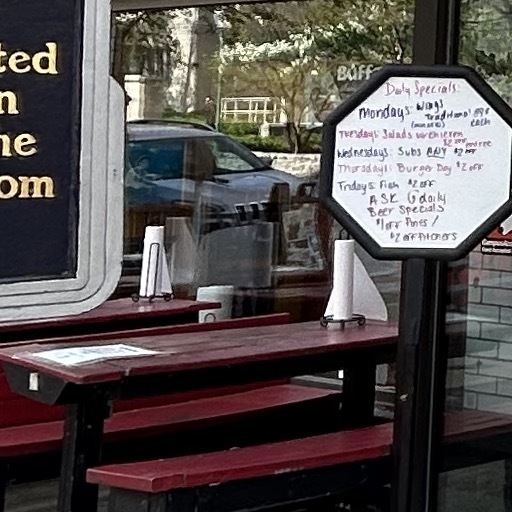 ted
n
ne
om
BUFF
Daily Specials:
Mondays: Wings
Traditional
each
Tuesdays: Salads
$2 off
Wednesdays: Subs ANY $2 off
Thursdays: Burger Day $2 off
Fridays: Fish $2 off
ASK 4 daily
Beer Specials
$1 off Pints /
$2 off Pitchers